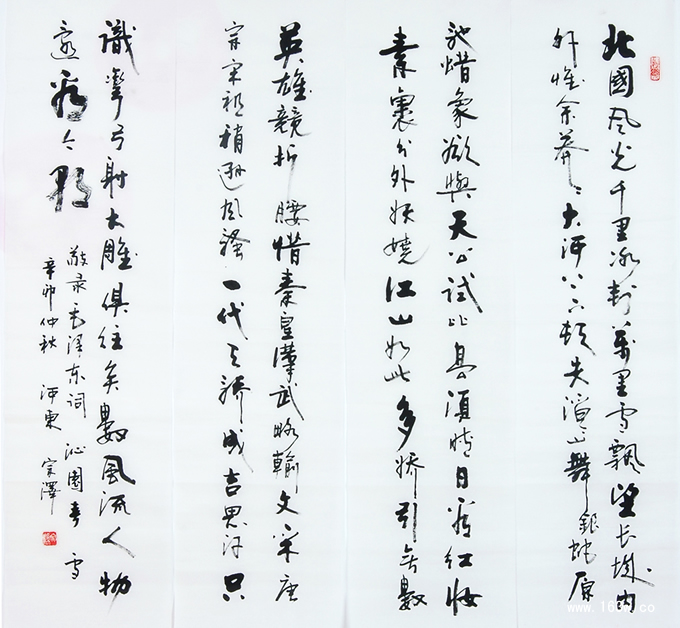 北國风光千里冰封萬里雪飄望长城内
外惟余莽〻大河上下顿失滔〻山舞銀蛇原
驰蜡象欲與天公试比高须晴日看红妆
素裹分外妖娆江山如此多娇引无數
英雄競折腰惜秦皇漢武略輸文采唐
宗宋祖稍逊风骚一代天骄成吉思汗只
識彎弓射大雕俱往矣數風流人物
还看今朝
敬录毛泽东词 沁園春 雪
辛卯仲秋 河東 宗澤